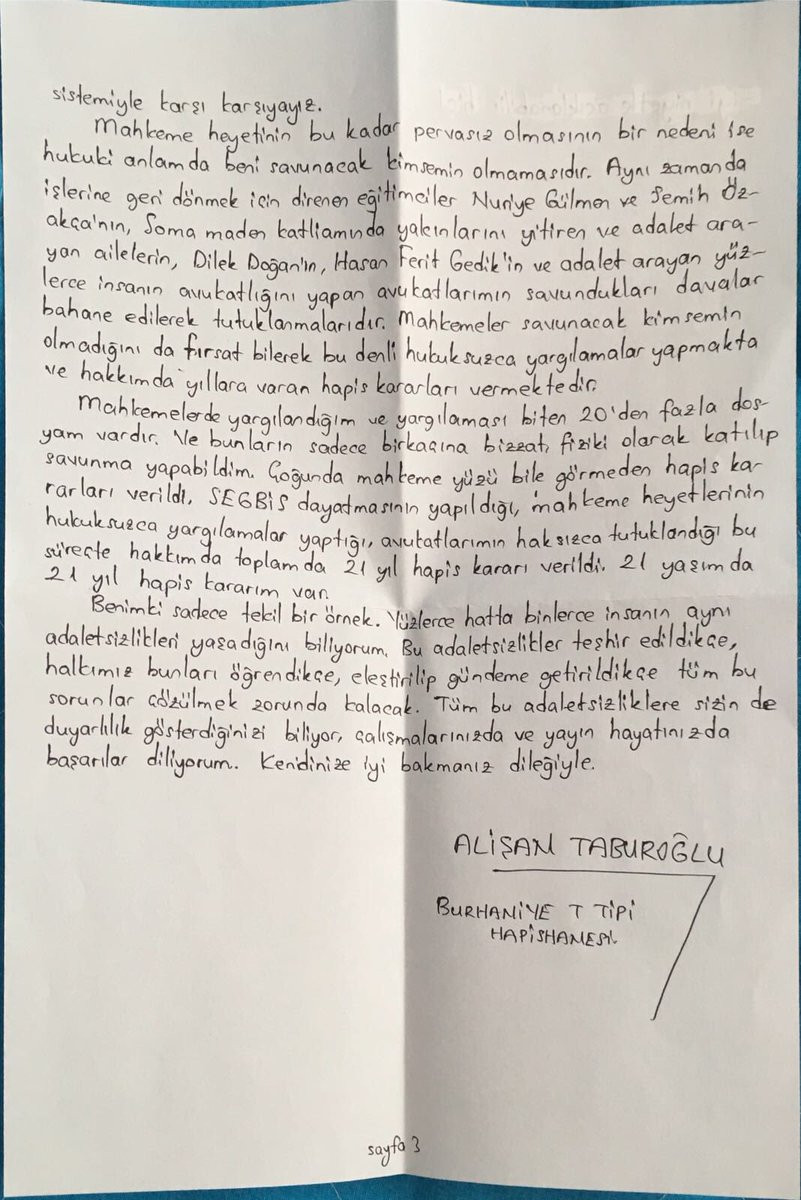 sistemiyle karşı karşıyayız.
Mahkeme heyetinin bu kadar pervasız olmasının bir nedeni ise
hukuki anlamda beni savunacak kimsemin olmamasıdır. Aynı zamanda
işlerine geri dönmek için direnen eğitimciler Nuriye Gülmen ve Semih Öz-
akça'nın, Soma maden katliamında yakınlarını yitiren ve adalet ara-
yan ailelerin, Dilek Doğan'ın, Hasan Ferit Gedik'in ve adalet arayan yüz-
lerce insanın avukatlığını yapan avukatlarımın savundukları davalar
bahane edilerek tutuklanmalarıdır. Mahkemeler savunacak kimsemin
olmadığını da fırsat bilerek bu denli hukuksuzca yargılamalar yapmakta
ve hakkımda yıllara varan hapis kararları vermektedir.
Mahkemelerde yargılandığım ve yargılaması biten 20'den fazla dos-
yam vardır. Ve bunların sadece birkaçına bizzat, fiziki olarak katılıp
savunma yapabildim. Çoğunda mahkeme yüzü bile görmeden hapis ka-
rarları verildi. SEGBİS dayatmasının yapıldığı, mahkeme heyetlerinin
hukuksuzca yargılamalar yaptığı, avukatlarımın haksızca tutuklandığı bu
süreçte hakkımda toplamda 21 yıl hapis kararı verildi. 21 yaşımda
21 yıl hapis kararım var.
Benimki sadece tekil bir örnek. Yüzlerce hatta binlerce insanın aynı
adaletsizlikleri yaşadığını biliyorum. Bu adaletsizlikler teşhir edildikçe,
halkımız bunları öğrendikçe, eleştirilip gündeme getirildikçe tüm bu
sorunlar çözülmek zorunda kalacak. Tüm bu adaletsizliklere sizin de
duyarlılık gösterdiğinizi biliyor, çalışmalarınızda ve yayın hayatınızda
başarılar diliyorum. Kendinize iyi bakmanız dileğiyle.
ALİŞAN TABUROĞLU
BURHANİYE T TİPİ
HAPİSHANESİ
sayfa 3